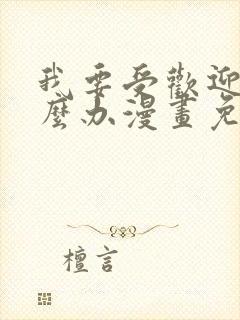 我要受歡迎
麼办漫畫免
檀言